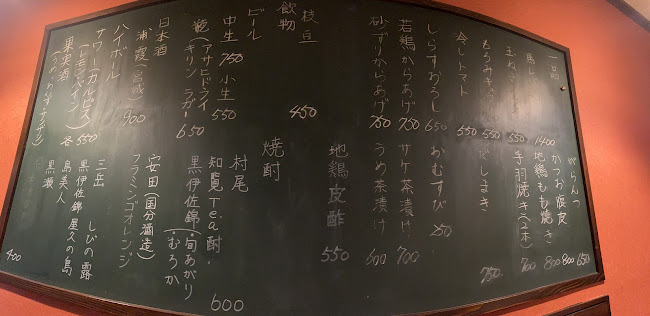 一品
馬し 1400
玉ねぎ 550
もろみき 550
冷しトマト 550
しらすおろし 650
若鶏からあげ 750
砂ずりからあげ 750
枝豆 450
がらんつ 650
かつお腹皮 800
地鶏もも焼き 800
手羽焼き(2本) 700
だしまき 750
おむすび 250
サケ茶漬け 700
うめ茶漬け 600
地鶏皮酢 550
飲物
ビール
中生 750 小生 550
瓶(アサヒドライ
キリンラガー 650
日本酒
浦霞(宮城) 900
ハイボール
サワー・カルピス
(レモン・パイン) 各550
果実酒
(うめ・ゆず・
焼酎
村尾
知覧Tea酎
黒伊佐錦(旬あがり
むろか 600
安田(国分酒造)
フラミンゴオレンジ
三岳 しびの露
黒伊佐錦 屋久の島
島美人
黒瀬
400